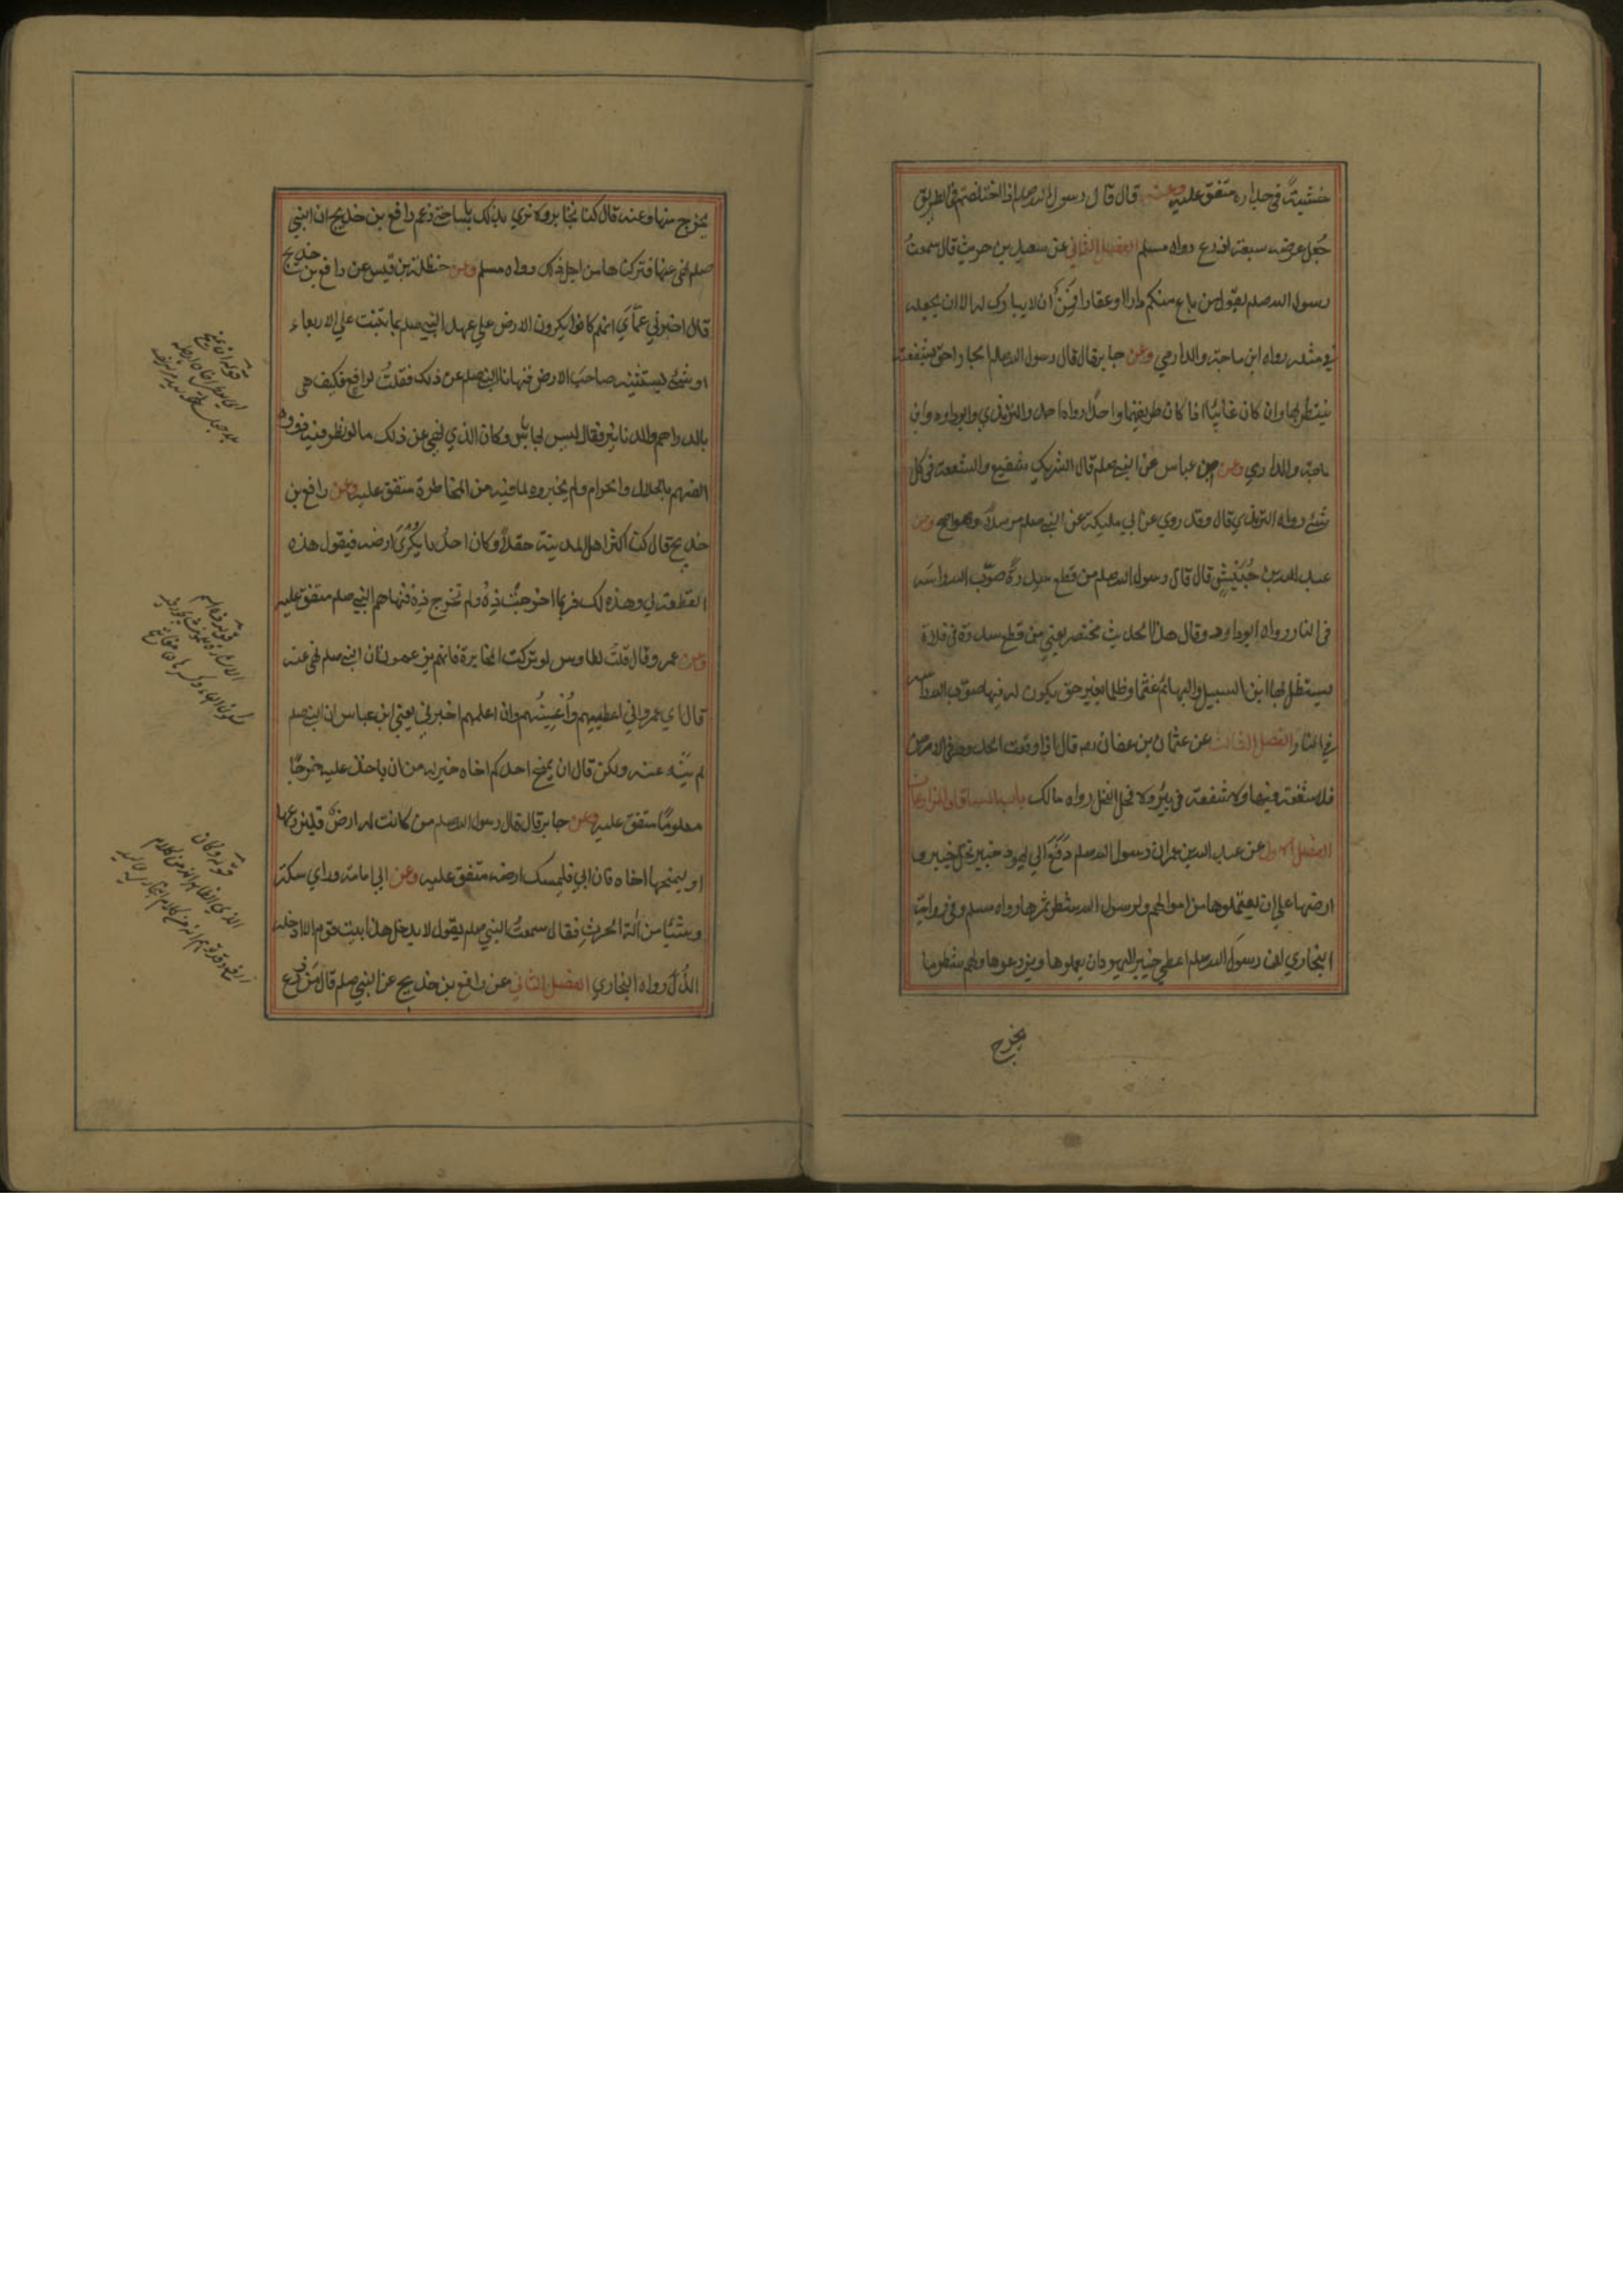 خشبة في جداره متفق عليه وعنه قال قال رسول الله صلعم اذا اختلفتم في الطريق
جُعل عرضه سبعة اذرع رواه مسلم الفصل الثاني عن سعيد بن حريث قال سمعتُ
رسول الله صلعم يقول من باع منكم دارا او عقارا قَمِنٌ ان لا يبارك له الا ان يجعله
في مثله رواه ابن ماجة والدارمي وعن جابر قال قال رسول الله صلعم الجار احق بشفعته
ينتظر بها وان كان غائبًا اذا كان طريقهما واحدًا رواه احمد والترمذي وابوداود وابن
ماجة والدارمي وعن ابن عباس عن النبي صلعم قال الشريك شفيع والشفعة في كل
شئ رواه الترمذي قال وقد روي عن ابي مليكة عن النبي صلعم مرسلاً وهو اصح وعن
عبد الله بن حُبَيْشٍ قال قال رسول الله صلعم من قطع سدرةً صوّب الله راسه
في النار رواه ابوداود وقال هذا الحديث مختصر يعني من قطع سدرة في فلاة
يستظل بها ابن السبيل والبهائم غشما وظلما بغير حق يكون له فيها صوّب الله راسه
في النار الفصل الثالث عن عثمان بن عفان رض قال اذا وقعت الحدود في الارض
فلا شفعة فيها ولا شفعة في بئر ولا فحل النخل رواه مالك باب المساقاة والمزارعة
الفصل الاول عن عبد الله بن عمر ان رسول الله صلعم دَفَعَ الي يهود خيبر نخل خيبر و
ارضها علي ان يعتملوها من اموالهم ولرسول الله شطر ثمرها رواه مسلم وفي رواية
البخاري ان رسول الله صلعم اعطي خيبر اليهود ان يعملوها ويزرعوها ولهم شطر ما
يخرج
يخرج منها وعنه قال كنا نخابر ولا نري بذلك باسا حتي زعم رافع بن خديج ان النبي
صلعم نهي عنها فتركناها من اجل ذلك رواه مسلم وعن حنظلة بن قيس عن رافع بن خديج
قال اخبرني عمّاي انهم كانوا يكرون الارض علي عهد النبي صلعم بما ينبت علي الاربعاء
او شئ يستثنيه صاحب الارض فنهانا النبي صلعم عن ذلك فقلتُ لرافع فكيف هي
بالدراهم والدنانير فقال ليس بها باس وكان الذي نهي عن ذلك ما لو نظر فيه ذوو
الفهم بالحلال والحرام ولم يجيزوه لما فيه من المخاطرة متفق عليه وعن رافع بن
خديج قال كنا اكثر اهل المدينة حقلاً وكان احدنا يُكْرِي ارضه فيقول هذه
القطعة لي وهذه لك فربما اخرجت ذِهْ ولم تخرج ذِهْ فنهاهم النبي صلعم متفق عليه
وعن عمرو قال قلتُ لطاوس لو تركت المخابرة فانهم يزعمون ان النبي صلعم نهي عنه
قال اي عمرو اني اعطيهم وأُعِينُهم وان اعلمهم اخبرني يعني ابن عباس ان النبي صلعم
لم يَنْهَ عنه ولكن قال ان يمنح احدكم اخاه خير له من ان ياخذ عليه خرجًا
معلومًا متفق عليه وعن جابر قال قال رسول الله صلعم من كانت له ارض فليزرعها
او ليمنحها اخاه فان ابي فليمسك ارضه متفق عليه وعن ابي امامة وراي سكة
وشيئا من آلة الحرث فقال سمعتُ النبي صلعم يقول لا يدخل هذا بيت قوم الا ادخله
الذُل رواه البخاري الفصل الثاني عن رافع بن خديج عن النبي صلعم قال من زرع